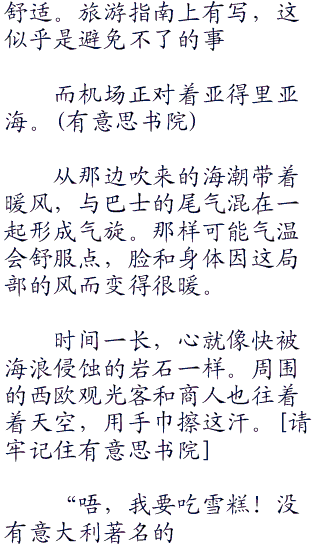 舒适。旅游指南上有写，这
似乎是避免不了的事
而机场正对着亚得里亚
海。(有意思书院)
从那边吹来的海潮带着
暖风，与巴士的尾气混在一
起形成气旋。那样可能气温
会舒服点，脸和身体因这局
部的风而变得很暖。
时间一长，心就像快被
海浪侵蚀的岩石一样。周围
的西欧观光客和商人也往着
着天空，用手巾擦这汗。[请
牢记住有意思书院]
“唔，我要吃雪糕！没
有意大利著名的